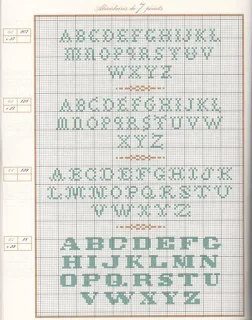 Abécédaires de 7 points
ABCDEFGHIJKL
MNOPQRSTUV
WXYZ
ABCDEFGHIJKL
MNOPQRSTUVW
XYZ
ABCDEFGHIJK
LMNOPQRSTU
VWXYZ
ABCDEFG
HIJKLM
OPQRSTU
VWXYZ